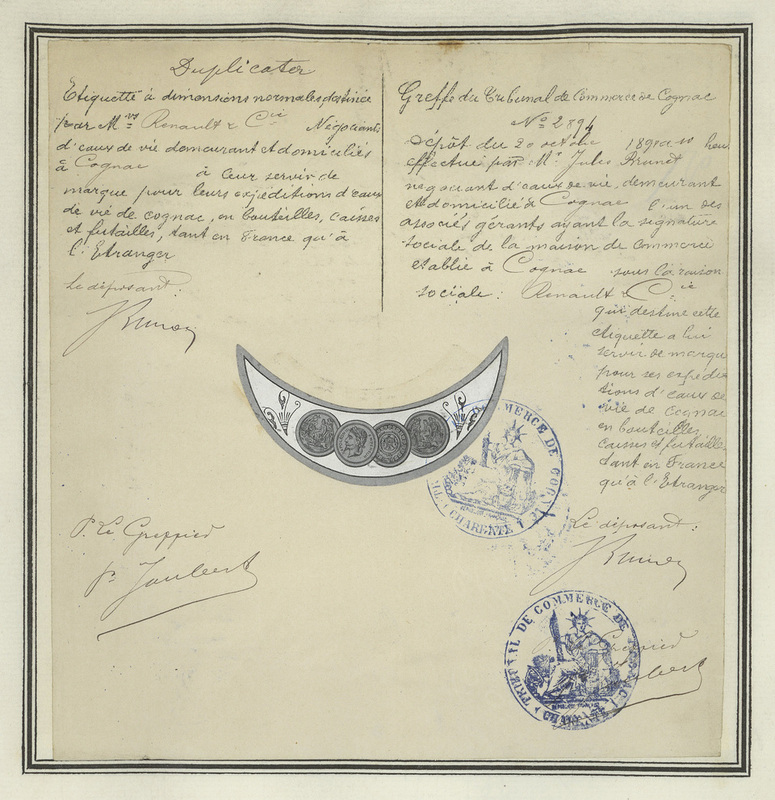 Duplicater
Etiquette à dimensions normales destinée
par M.rs Renault & Cie Négociants
d'eaux de vie demeurant et domiciliés
à Cognac à leur servir de
marque pour leurs expéditions d'eaux
de vie de cognac, en bouteilles, caisses
et futailles, tant en France qu'à
l'Etranger
Le déposant:
J Brunet
P. Le Greffier
P. Joubert
Greffe du Tribunal de Commerce de Cognac
No 2894
Dépôt du 20 octobre
effectué par Mr Jules Brunet
négociant d'eaux de vie, demeurant
et domicilié à Cognac l'un des
associés gérants ayant la signature
sociale de la maison de commerce
établie à Cognac sous la raison
sociale: Renault & Cie
qui destine cette
étiquette a lui
servir de marque
pour ses expédi
tions d'eaux de
vie de cognac
en bouteilles,
caisses et futailles
tant en France
qu'à l'Etranger
Le déposant:
J Brunet
TRIBUNAL DE COMMERCE DE COGNAC
CHARENTE